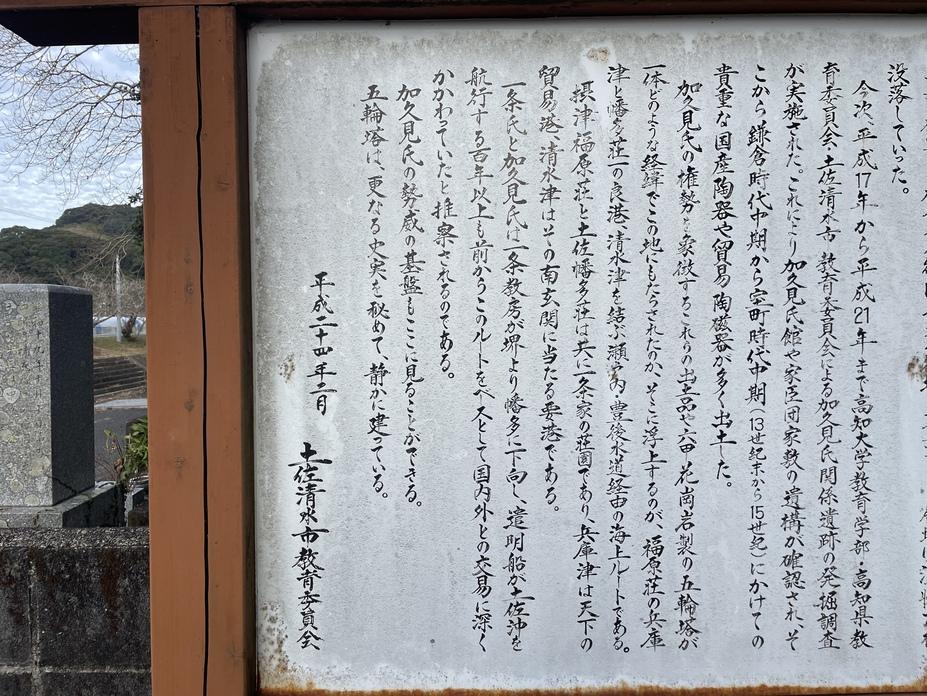 没落していった。
今次、平成17年から平成21年まで高知大学教育学部・高知県教
育委員会、土佐清水市教育委員会による加久見氏関係遺跡の発掘調査
が実施された。これにより加久見氏館や家臣団家敷の遺構が確認され、そ
こから鎌倉時代中期から室町時代中期（13世紀末から15世紀）にかけての
貴重な国産陶器や貿易陶磁器が多く出土した。
加久見氏の権勢を象徴するこれらの出土品や六甲花崗岩製の五輪塔が
一体どのような経緯でこの地にもたらされたのか、そこに浮上するのが、福原荘の兵庫
津と幡多荘一の良港、清水津を結ぶ瀬戸内・豊後水道経由の海上ルートである。
摂津福原荘と土佐幡多荘は共に一条家の荘園であり、兵庫津は天下の
貿易港、清水津はその南玄関に当たる要港である。
一条氏と加久見氏は一条教房が堺より幡多に下向し、遣明船が土佐沖を
航行する百年以上も前からこのルートをベースとして国内外との交易に深く
かかわっていたと推察されるのである。
加久見氏の勢威の基盤もここに見ることができる。
五輪塔は、更なる史実を秘めて、静かに建っている。
平成二十四年二月　土佐清水市教育委員会